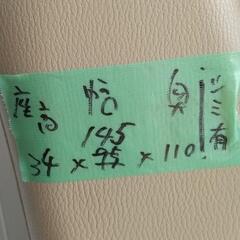 座高 幅 奥 シミ有
145
34 × × 110